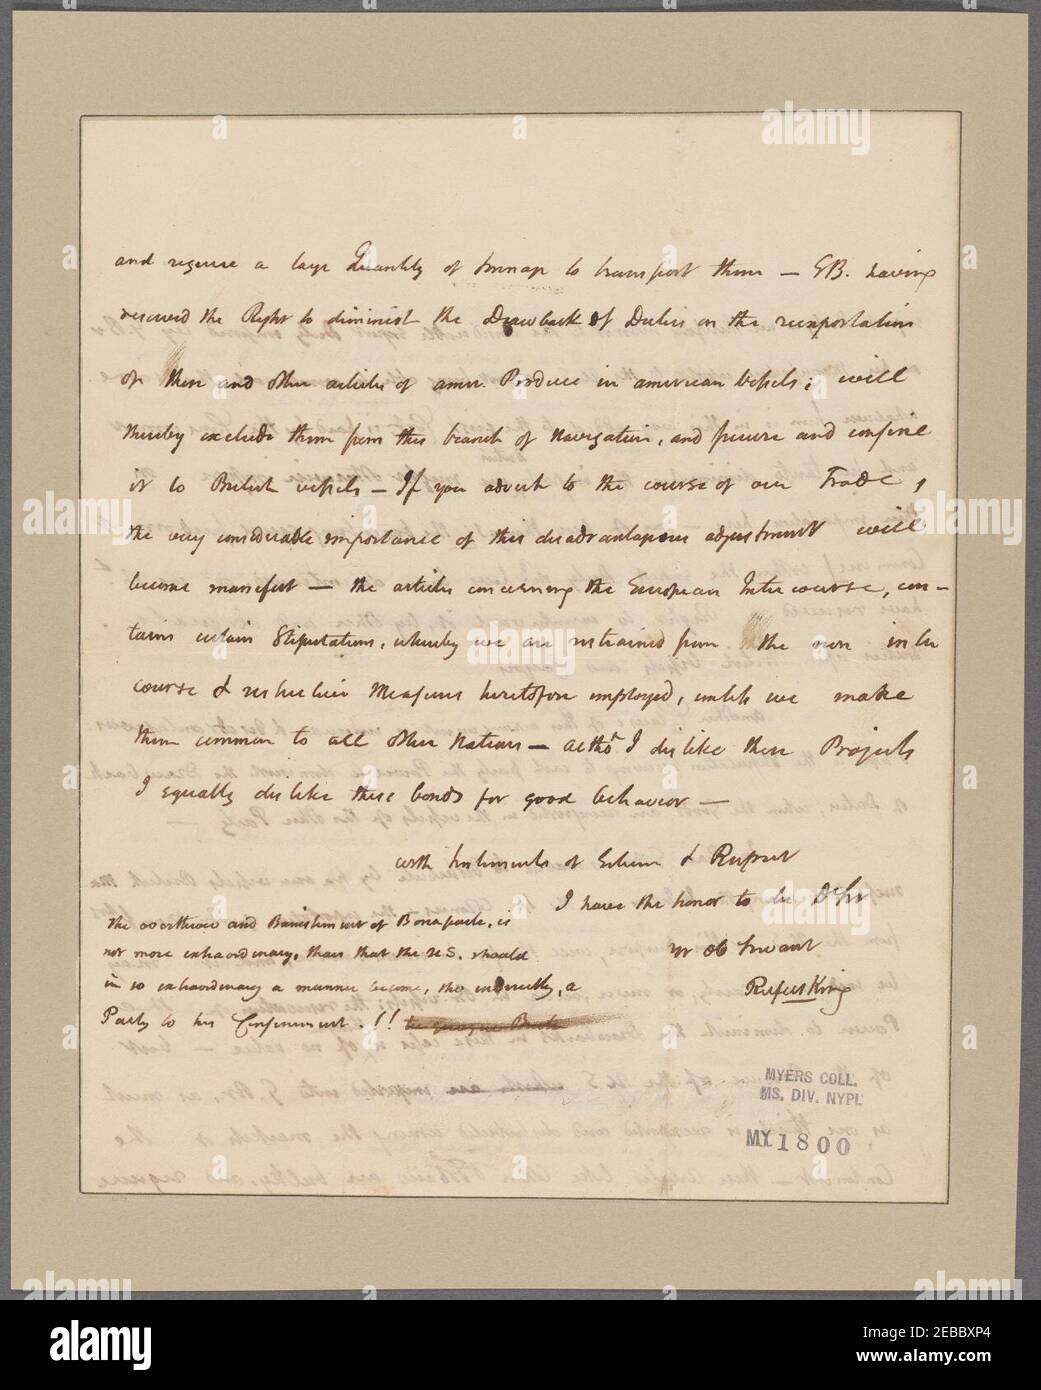 and require a large Quantity of tonnage to transport them — GB. having
reserved the Right to diminish the Drawback of Duties on the reexportation
of these and other articles of amer. Produce in american Vessels; will
thereby exclude them from this branch of Navigation, and secure and confine
it to British vessels — If you advert to the course of our Trade,
the very considerable importance of this disadvantageous adjustment will
become manifest — the articles concerning the European Intercourse, con-
tains certain Stipulations, whereby we are restrained from the non inter
course & restrictive Measures heretofore employed, unless we make
them common to all other Nations — altho' I dislike these Projects
I equally dislike these bonds for good behavior —
with Sentiments of Esteem & Respect
I have the honor to be Dr Sir
yr ob Servant
Rufus King
the overthrow and Banishment of Bonaparte, is
not more extraordinary, than that the U S. should
in so extraordinary a manner become, tho indirectly, a
Party to his Confinement. !!
MYERS COLL.
MS. DIV. NYPL
MY 1800
alamy
a
alamy
2EBBXP4
www.alamy.com